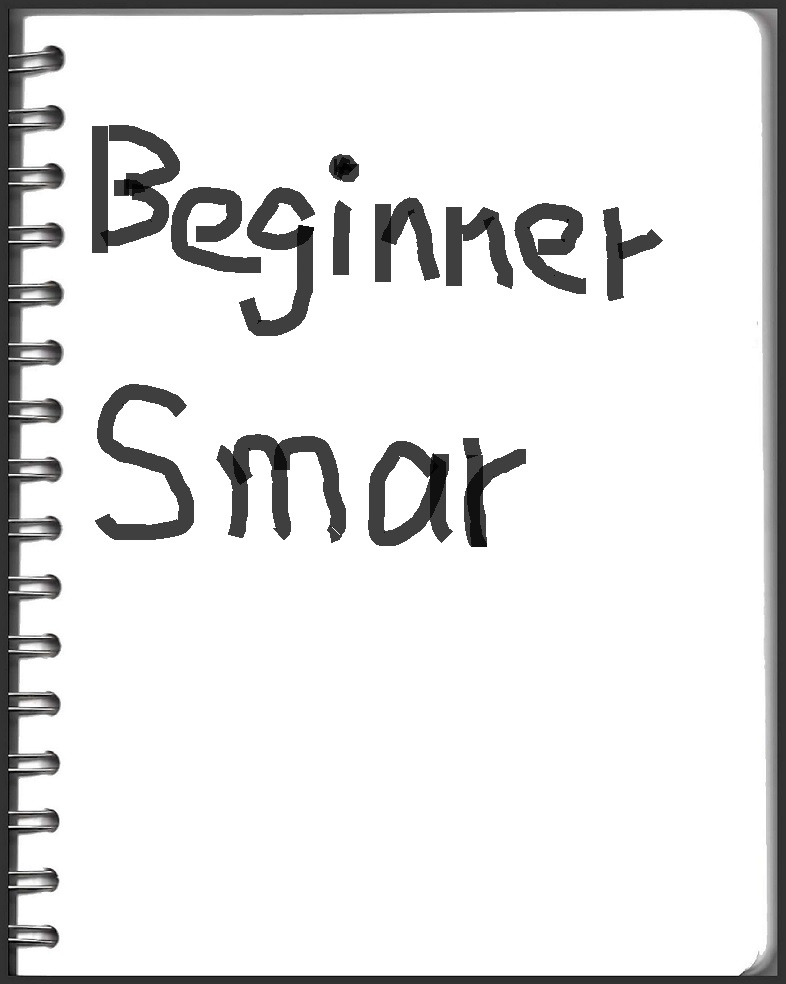 Beginner
Smar